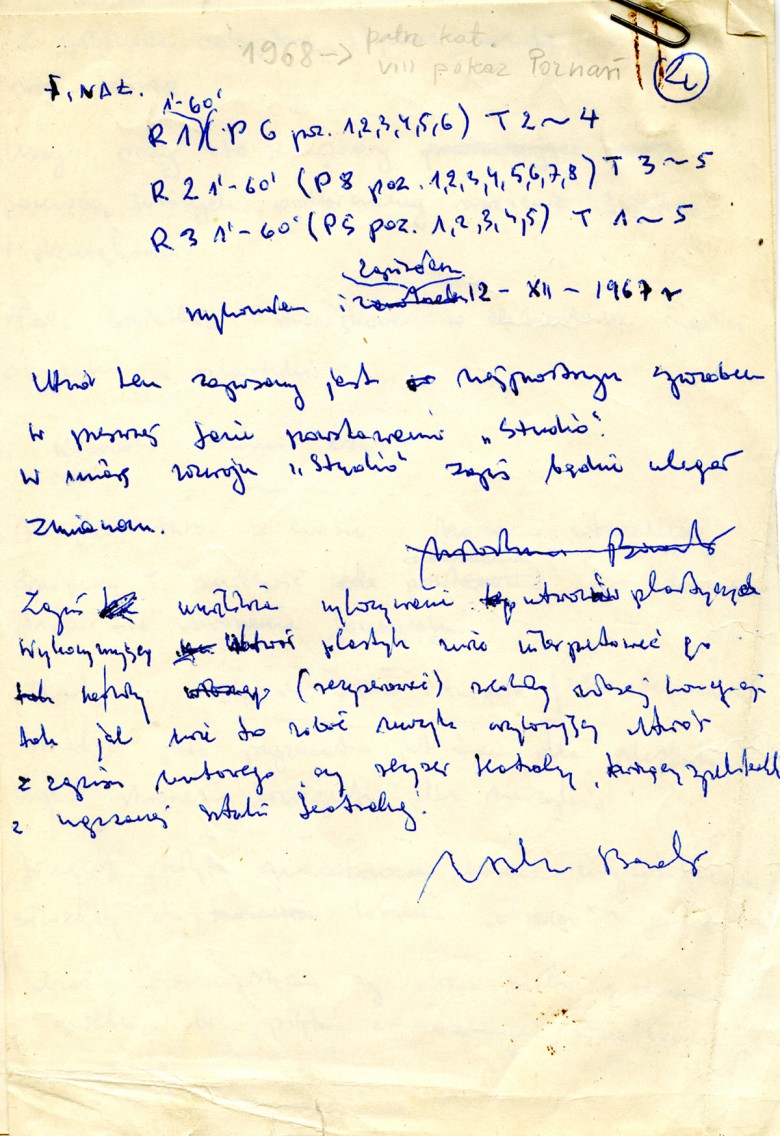 1968 → patrz kat.
VIII pokaz Poznań
2.
FINAŁ.
1'-60'
R 1 ( P 6 poz. 1,2,3,4,5,6) T 2 ~ 4
R 2 1'-60' (P 8 poz. 1,2,3,4,5,6,7,8) T 3 ~ 5
R 3 1'-60' (P5 poz. 1,2,3,4,5) T 1 ~ 5
zapisałem
wykonałem i 12 - XII - 1967 r
Utwór ten zapisany jest najprostszym sposobem
w pierwszej fazie powstawania „Studio".
W miarę rozwoju „Studio" zapis będzie ulegał
zmianom.
Zapis umożliwia utworów plastycznych
Wykonujący plastyk może interpretować go
(reżyserować) według własnej koncepcji
tak jak może to robić muzyk wykonujący utwór
z zapisu nutowego czy reżyser teatralny, tworzący spektakl
z napisanej sztuki teatralnej.